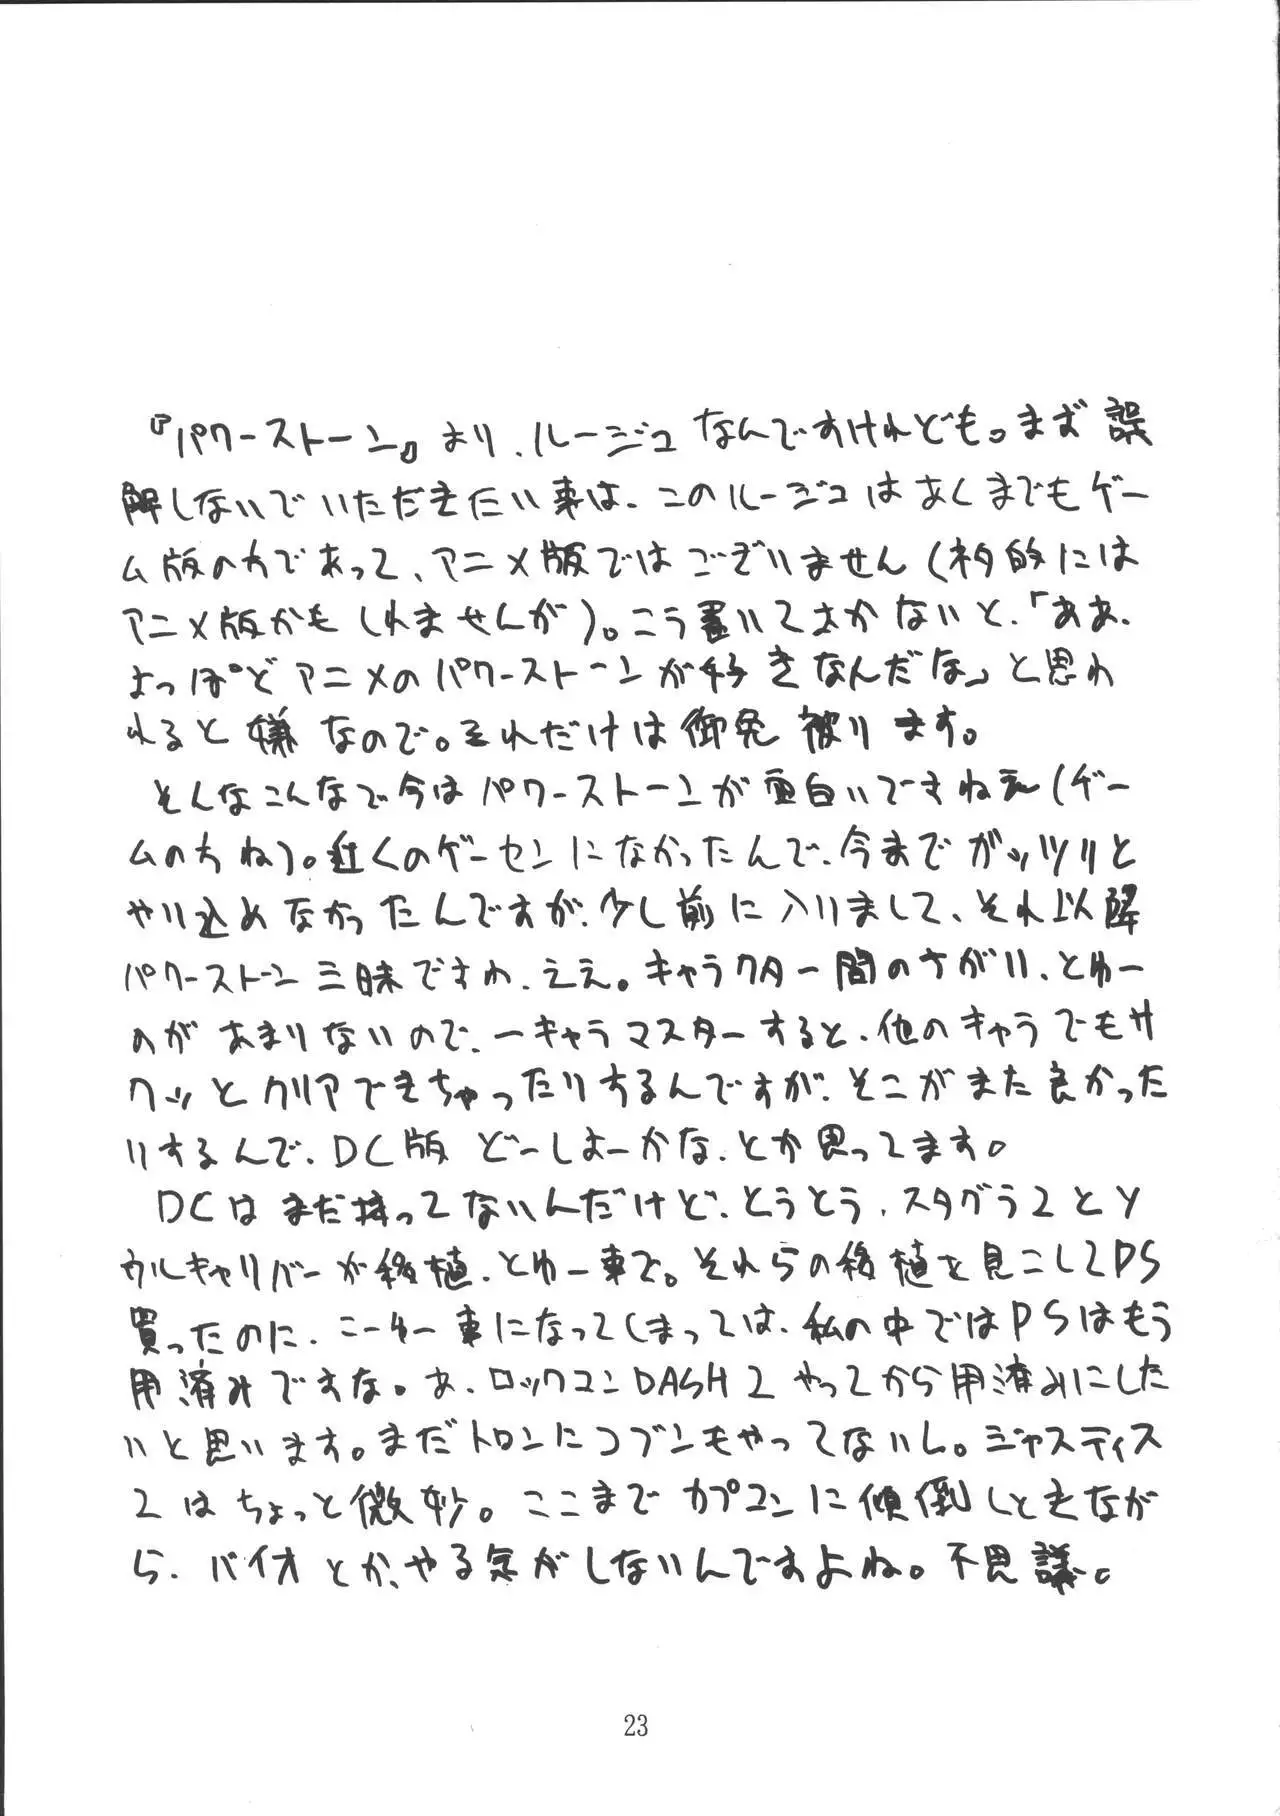 『パワーストーン』より、ルージュなんですけれども。まず誤
解しないでいただきたい事は、このルージュはあくまでもゲー
ム版の方であって、アニメ版ではございません（ネタ的には
アニメ版かもしれませんが）。こう書いておかないと、「ああ、
よっぽどアニメのパワーストーンが好きなんだな」と思わ
れると嫌なので。それだけは御免被ります。
そんなこんなで今はパワーストーンが面白いですねえ（ゲー
ムのちね）。近くのゲーセンになかったんで、今までガッツリと
やり込めなかったんですが、少し前に入りまして、それ以降
パワーストーン三昧ですわ、ええ。キャラクター間のさがい、とゆー
のがあまりないので、一キャラマスターすると、他のキャラでもサ
クッとクリアできちゃったりするんですが、そこがまた良かった
りするんで、DC版どーしよーかな、とか思ってます。
DCはまだ持ってないんだけど、とうとう、スタグラ2とソ
ウルキャリバーが移植、とゆー事で。それらの移植を見こしてPS
買ったのに、こーゆー事になってしまっては、私の中ではPSはもう
用済みですな。あ、ロックマンDASH2やってから用済みにした
いと思います。まだトロンにコブンもやってないし。ジャスティス
2はちょっと微妙。ここまでカプコンに傾倒しときなが
ら、バイオとか、やる気がしないんですよね。不思議。
23